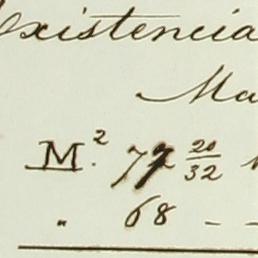 Existencia
Ma
M.² 77 20/32
" 68 – –